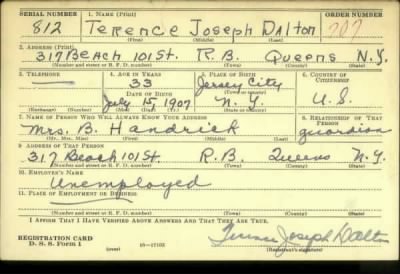 SERIAL NUMBER 1. NAME (Print) ORDER NUMBER
812 Terence Joseph Dalton 207
(First) (Middle) (Last)
2. ADDRESS (Print)
317 Beach 101 St. R.B. Queens N.Y.
(Number and street or R. F. D. number) (Town) (County) (State)
3. TELEPHONE 4. AGE IN YEARS 5. PLACE OF BIRTH 6. COUNTRY OF CITIZENSHIP
33 Jersey City
DATE OF BIRTH (Town or county)
July 15, 1907 N.Y. U.S.
(Exchange) (Number) (Mo.) (Day) (Yr.) (State or country)
7. NAME OF PERSON WHO WILL ALWAYS KNOW YOUR ADDRESS 8. RELATIONSHIP OF THAT PERSON
Mrs. B. Handrick guardian
(Mr., Mrs., Miss) (First) (Middle) (Last)
9. ADDRESS OF THAT PERSON
317 Beach 101 St. R.B. Queens N.Y.
(Number and street or R. F. D. number) (Town) (County) (State)
10. EMPLOYER'S NAME
Unemployed
11. PLACE OF EMPLOYMENT OR BUSINESS
(Number and street or R. F. D. number) (Town) (County) (State)
I AFFIRM THAT I HAVE VERIFIED ABOVE ANSWERS AND THAT THEY ARE TRUE.
REGISTRATION CARD Terence Joseph Dalton
D. S. S. Form 1 (over) 16-17105 (Registrant's signature)